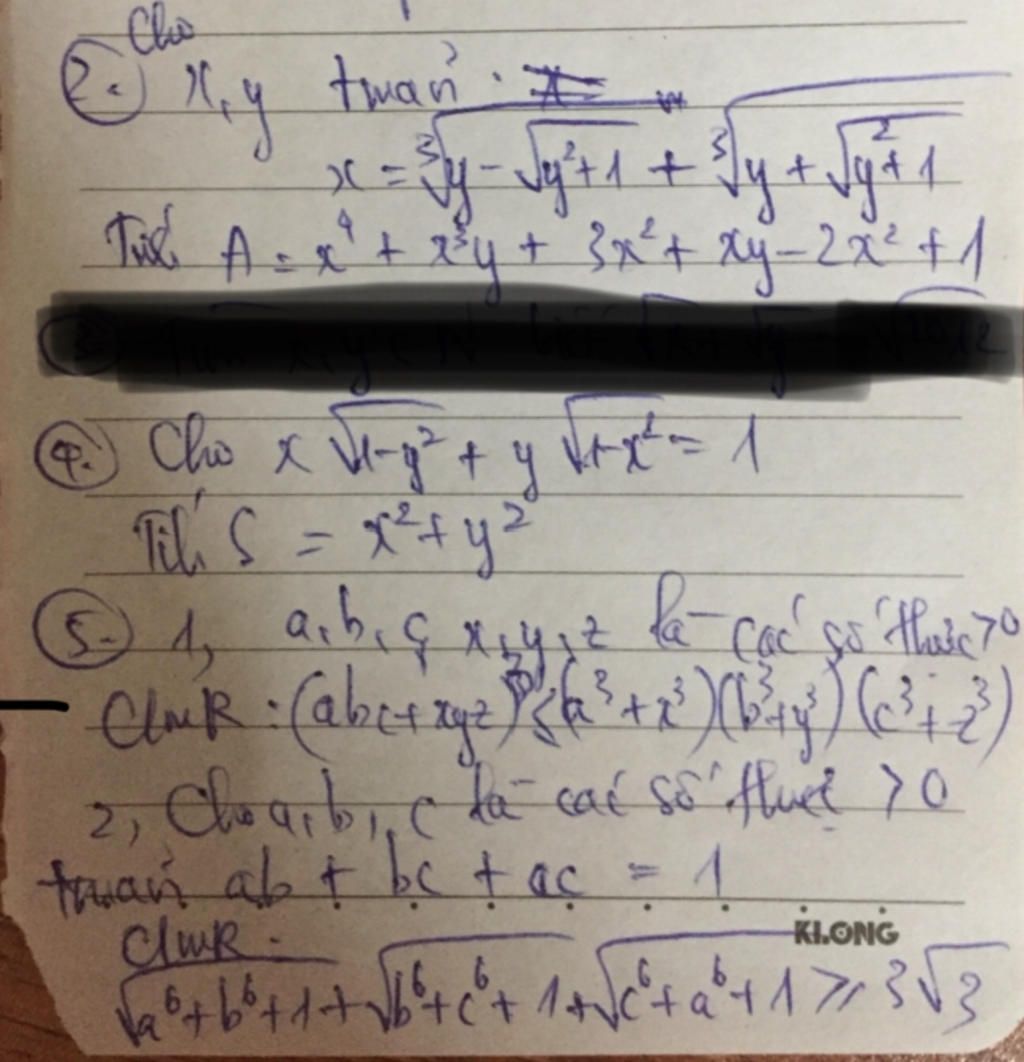 Cho
2. x, y tmãn:
x = ∛(y - √(y²+1)) + ∛(y + √(y²+1))
A = x⁴ + x³y + 3x² + xy - 2x² + 1
4. Cho x √(1-y²) + y √(1-x²) = 1
S = x² + y²
5. 1, a, b, c, x, y, z là các số thực >0
CMR : (abc + xyz)³ ≤ (a³ + x³)(b³ + y³)(c³ + z³)
2, Cho a, b, c là các số thực > 0
tmãn ab + bc + ac = 1
KLONG
CMR :
√(a⁶ + b⁶ + 1) + √(b⁶ + c⁶ + 1) + √(c⁶ + a⁶ + 1) ≥ 3√3